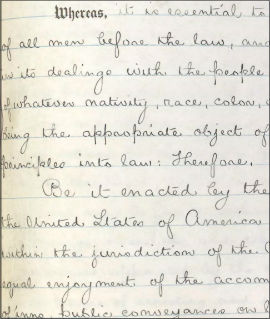 Whereas, it is essential to
of all men before the law, and
in its dealings with the people
of whatever nativity, race, color,
being the appropriate object of
principles into law: Therefore,
Be it enacted by the
the United States of America
within the jurisdiction of the
equal enjoyment of the accom
public conveyances on